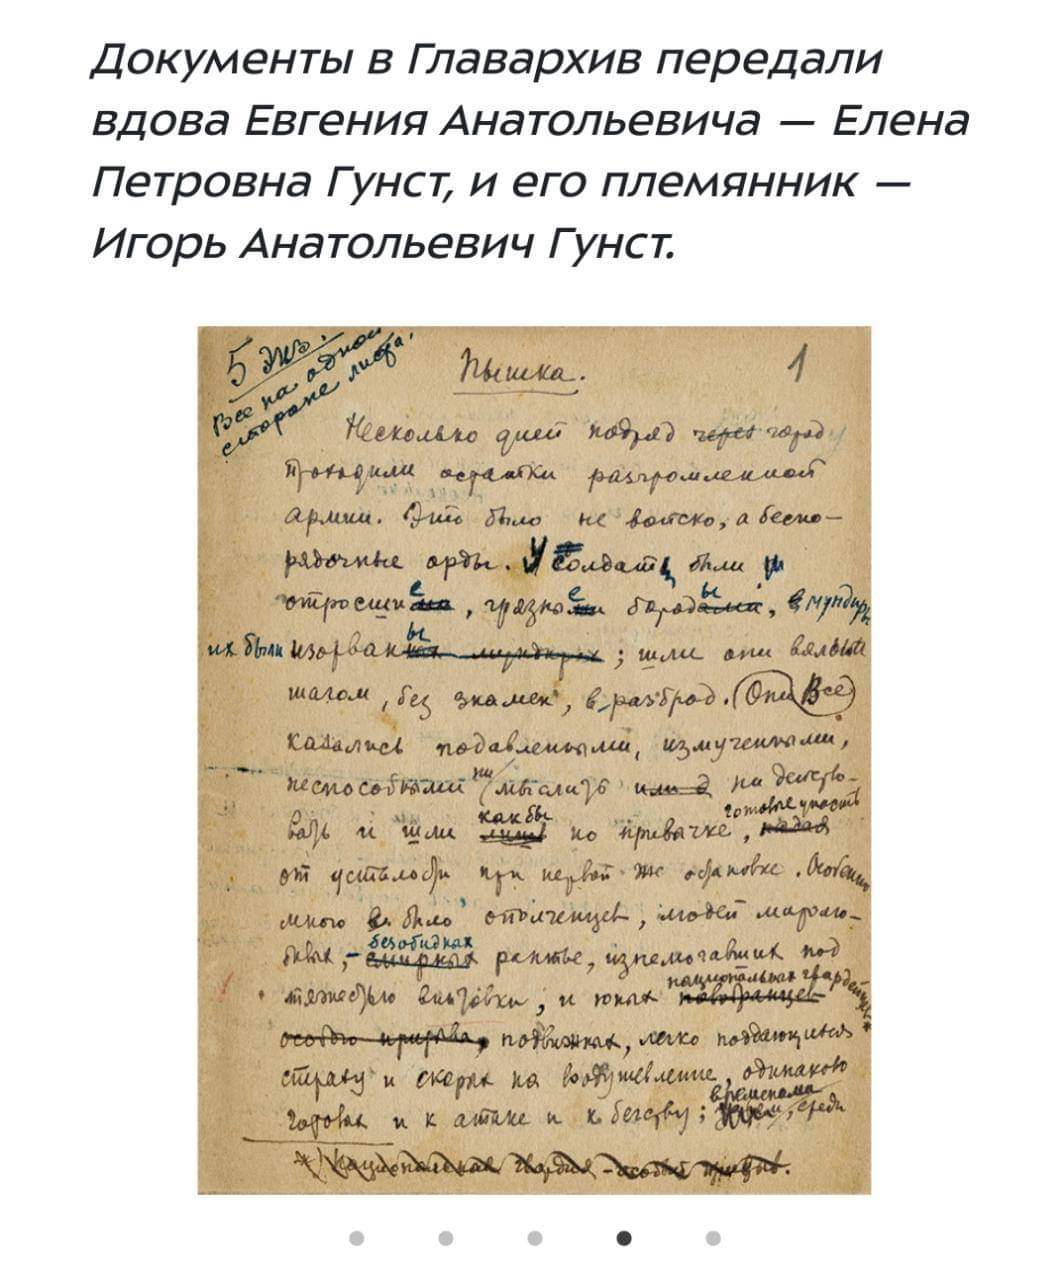 Документы в Главархив передали
вдова Евгения Анатольевича — Елена
Петровна Гунст, и его племянник —
Игорь Анатольевич Гунст.
5 экз.
Все на одной
стороне листа.
Пышка.
1
Несколько дней подряд через город
проходили остатки разгромленной
армии. Это было не войско, а беспо-
рядочные орды. У солдат были
отросшие, грязные бороды, мундиры
их были изорваны; шли они вялым
шагом, без знамен, в разброд. Они Все
казались подавленными, измученными,
неспособными ни мыслить или д ни действо-
вать и шли как бы по привычке, готовые упасть
падая
от усталости при первой же остановке. Особенно
много было ополченцев, людей миролю-
бивых, безобидных
смирных рантье, изнемогавших под
тяжестью винтовки, и юных национальных гвардейцев*
новобранцев
особого призыва, подвижных, легко поддающихся
страху и скорых на воодушевление, одинаково
готовых и к атаке и к бегству; временами среди
*) Национальная гвардия - особый призыв.